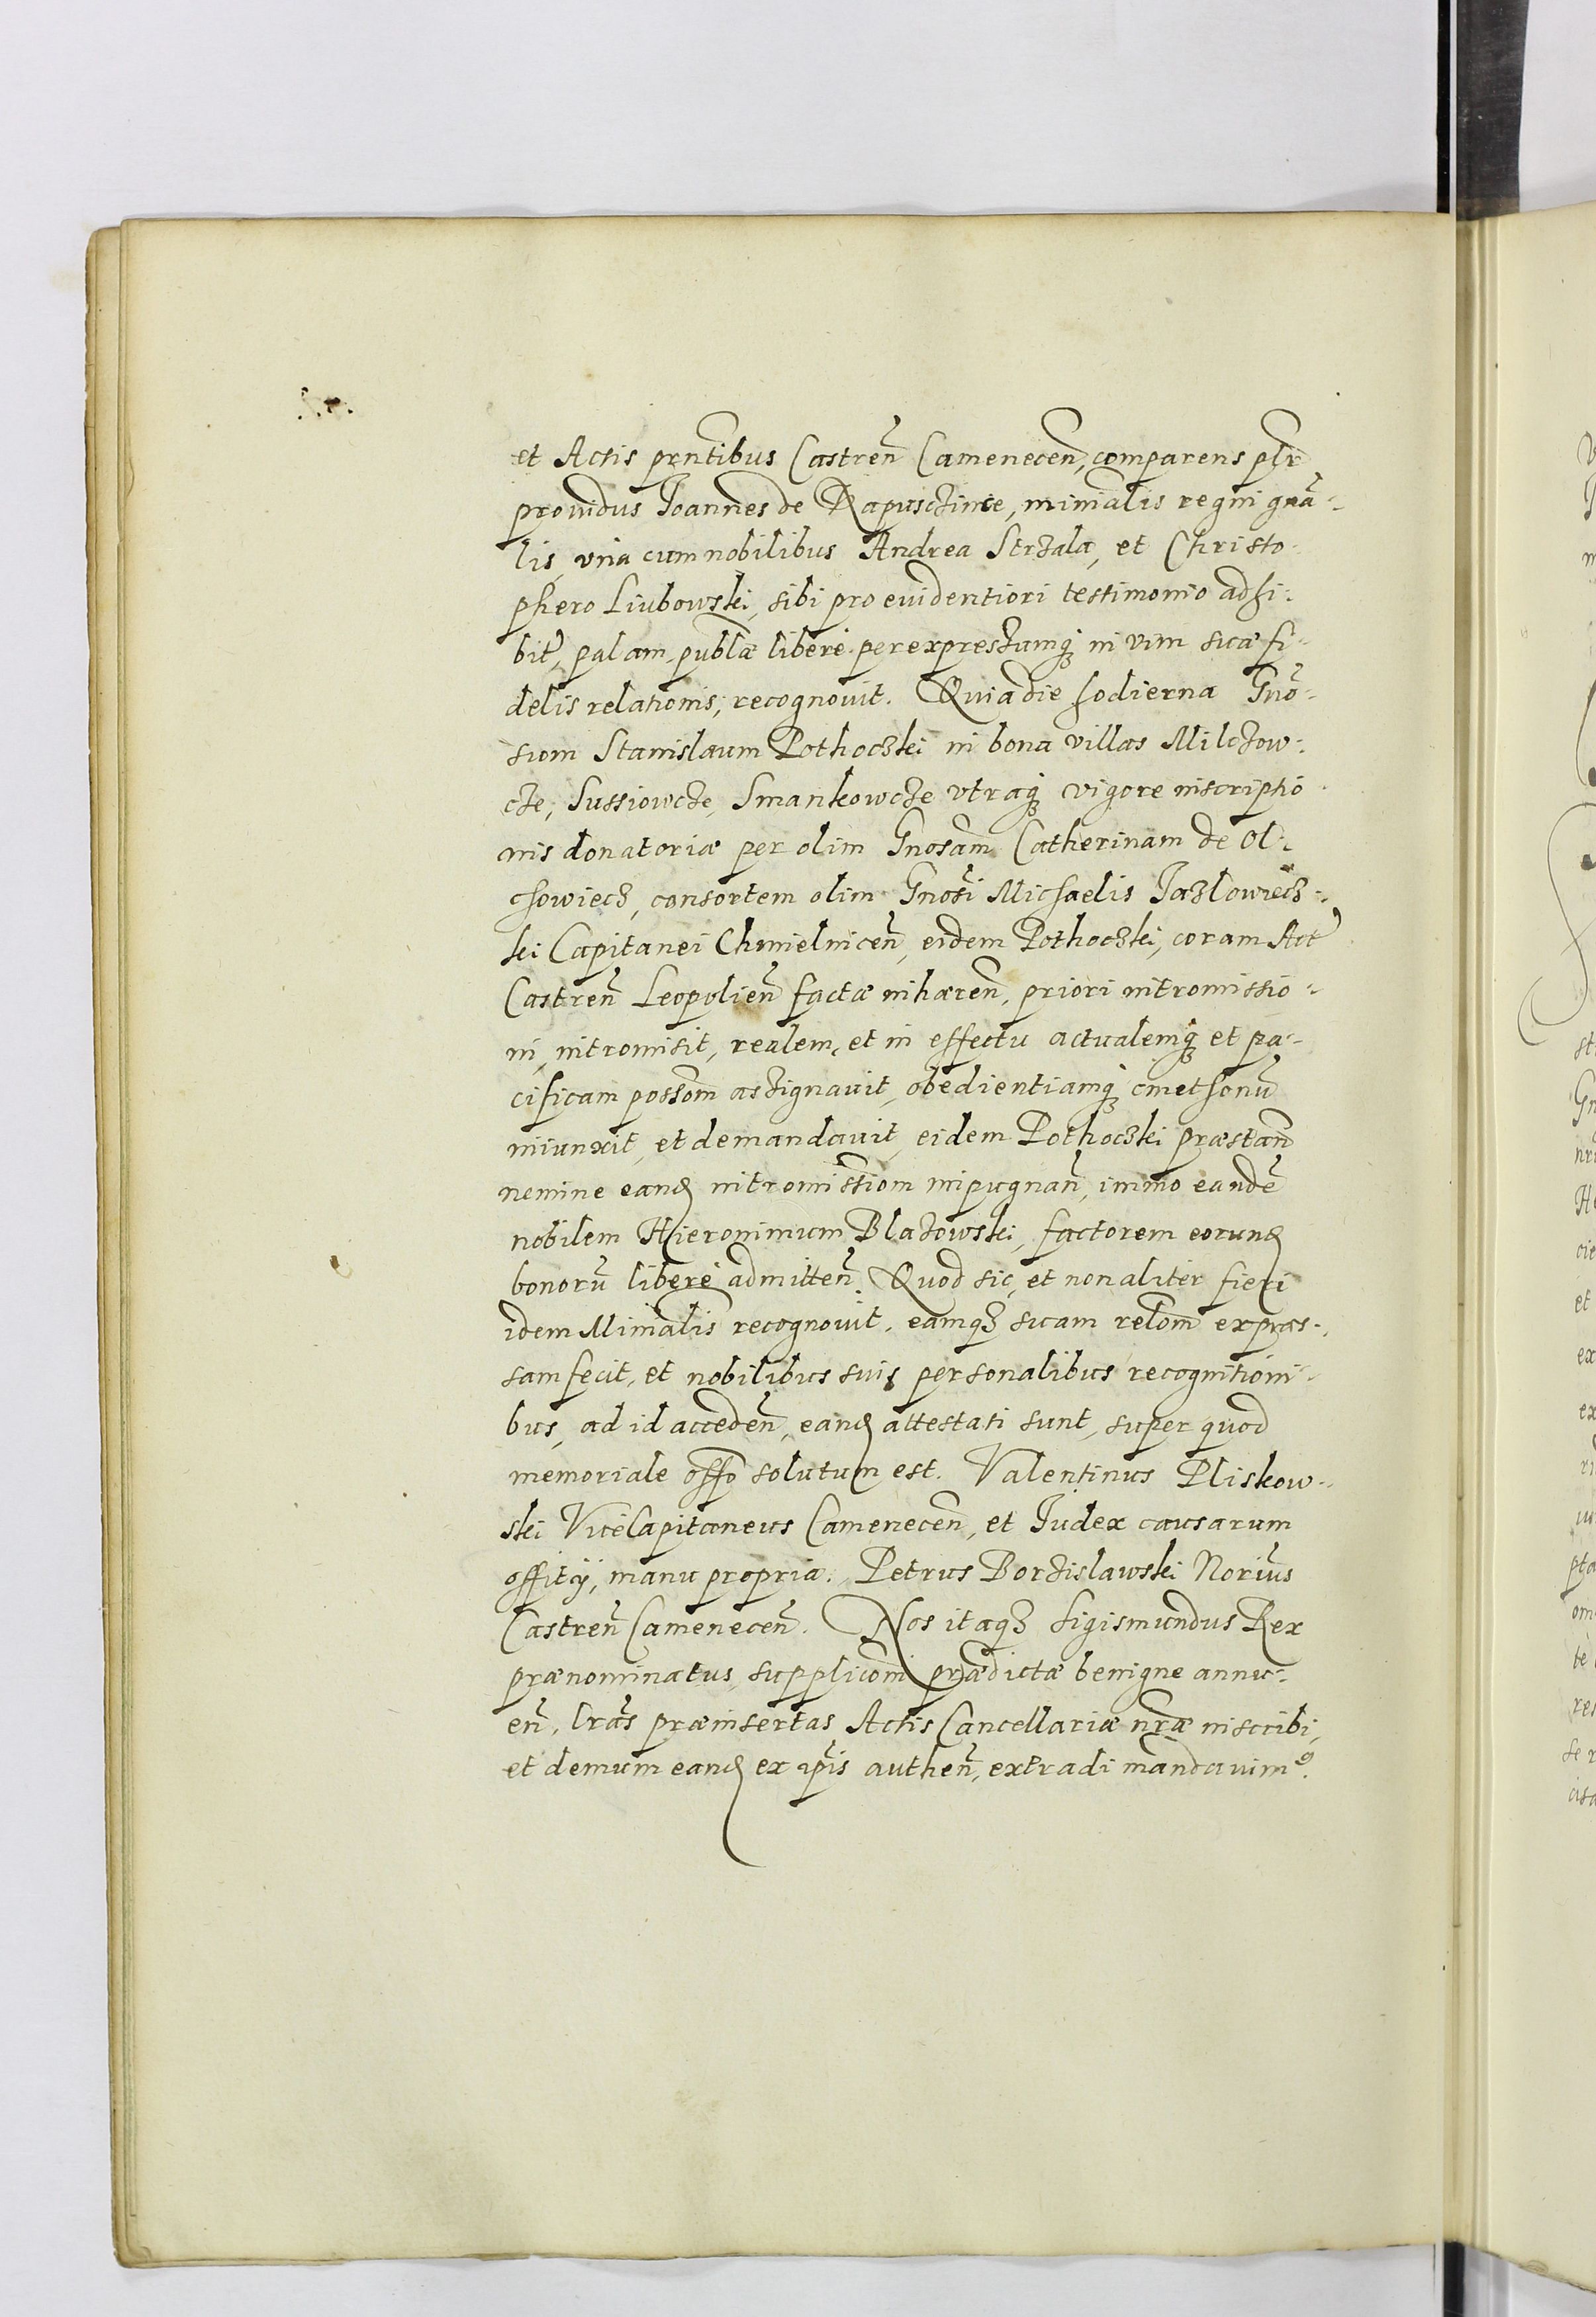 et Actis prntibus Castren̄ Camenecen̄, comparens plr
providus Joannes de Kapusczince, minialis regni gnā-
lis, vna cum nobilibus Andrea Strzala, et Christo-
phero Liubowski, sibi pro euidentiori testimonio adhi-
bit, palam, publæ libere per expressumq in vim suæ fi-
delis relationis, recognovit. Quia die hodierna Gnō-
sum Stanislaum Pothoczki in bona villas Milczow-
cze, Sussiowcze, Smankowcze vtraq vigore inscriptio
nis donatoriæ per olim Gnosam Catherinam de Ol-
chowiecz, consortem olim Gnosi Michaelis Jazlowiecz-
ki Capitanei Chmielnicen̄, eidem Pothoczki, coram Act
Castren̄ Leopolien̄ factæ inhæren̄, priori intromissio-
ni, intromisit, realem, et in effectu actualemq et pa-
cificam possom assignavit, obedientiamq cmethonū
iniunxit, et demandavit, eidem Pothoczki præstan̄
nemine eand intromissiom inpugnan̄, immo eandē
nobilem Hieronimum Blazowski, factorem eorund
bonorū libere admitten̄. Quod sic, et non aliter fieri
idem Minialis recognovit, eamq suam relom expræs-
sam fecit, et nobilibus suis personalibus recognitioni-
bus, ad id acceden̄, eand attestati sunt, super quod
memoriale offo solutum est. Valentinus Pliskow-
ski ViceCapitaneus Camenecen̄, et Judex causarum
offitij, manu propria. Petrus Borzislawski Norius
Castren̄ Camenecen̄. Nos itaq Sigismundus Rex
prænominatus, supplicom prædictæ benigne annu-
en̄, lrās præinsertas Actis Cancellariæ nræ inscribi,
et demum eand ex ipis authen̄, extradi mandauim9.